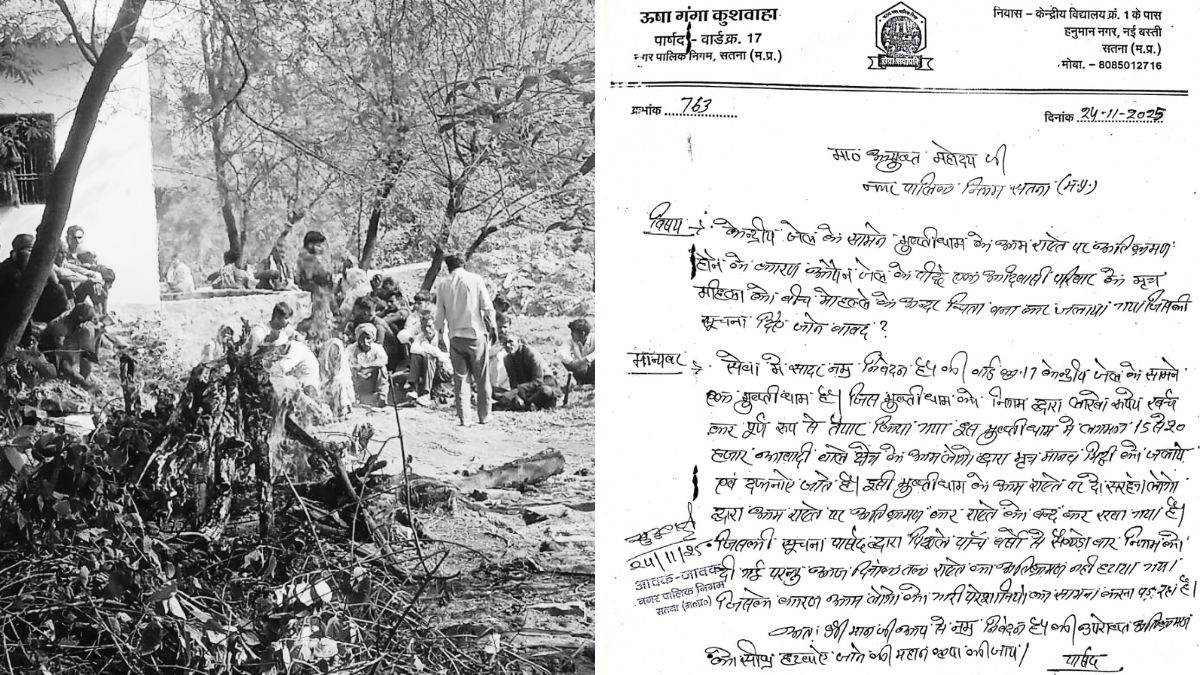 ऊषा गंगा कुशवाहा
पार्षद - वार्ड क्र. 17
नगर पालिक निगम, सतना (म.प्र.)
सेवा सर्वोपरि
निवास – केन्द्रीय विद्यालय क्रं. 1 के पास
हनुमान नगर, नई बस्ती
सतना (म.प्र.)
मोवा. – 8085012716
क्रमांक 763
दिनांक 24-11-2025
मा० आयुक्त महोदय जी
नगर पालिक निगम सतना (म.प्र.)
विषय → केन्द्रीय जेल के सामने मुक्तीधाम के आम रास्ते पर अतिक्रमण
होने के कारण जेल के पीछे एक आदिवासी परिवार के मृत
महिला को बीच मोहल्ले के अन्दर चिता बना कर जलाया गया जिसकी
सूचना दिए जाने बावद ?
मान्यवर सेवा में सादर नम्र निवेदन है की वार्ड क्र. 17 केन्द्रीय जेल के सामने
एक मुक्तीधाम है। जिस मुक्तीधाम को निगम द्वारा लाखों रूपये खर्च
कर पूर्ण रूप से तैयार किया गया इस मुक्तीधाम में लगभग 15 से 20
हजार आबादी वाले क्षेत्र के आम लोगों द्वारा मृत मानव मिट्टी को जलाये
एवं दफनाए जाते है। इसी मुक्तीधाम के आम रास्ते पर दो लोगो
द्वारा आम रास्ते पर अतिक्रमण कर रास्ते को बन्द कर रखा गया है।
जिसकी सूचना पार्षद द्वारा पिछले पाँच वर्षो से सैकड़ो बार निगम को
दी गई परन्तु आज दिनांक तक रास्ते का अतिक्रमण नही हटाया गया
जिसके कारण आम लोगो को भारी परेशानियों का सामना करना पड़ रहा है।
24/11/25
आवक-जावक
नगर पालिक निगम
सतना (म०प्र०)
अतः श्री मान जी आप से नम्र निवेदन है की उपरोक्त अतिक्रमण
को शीघ्र हटवाए जाने की महान कृपा की जाय।
पार्षद